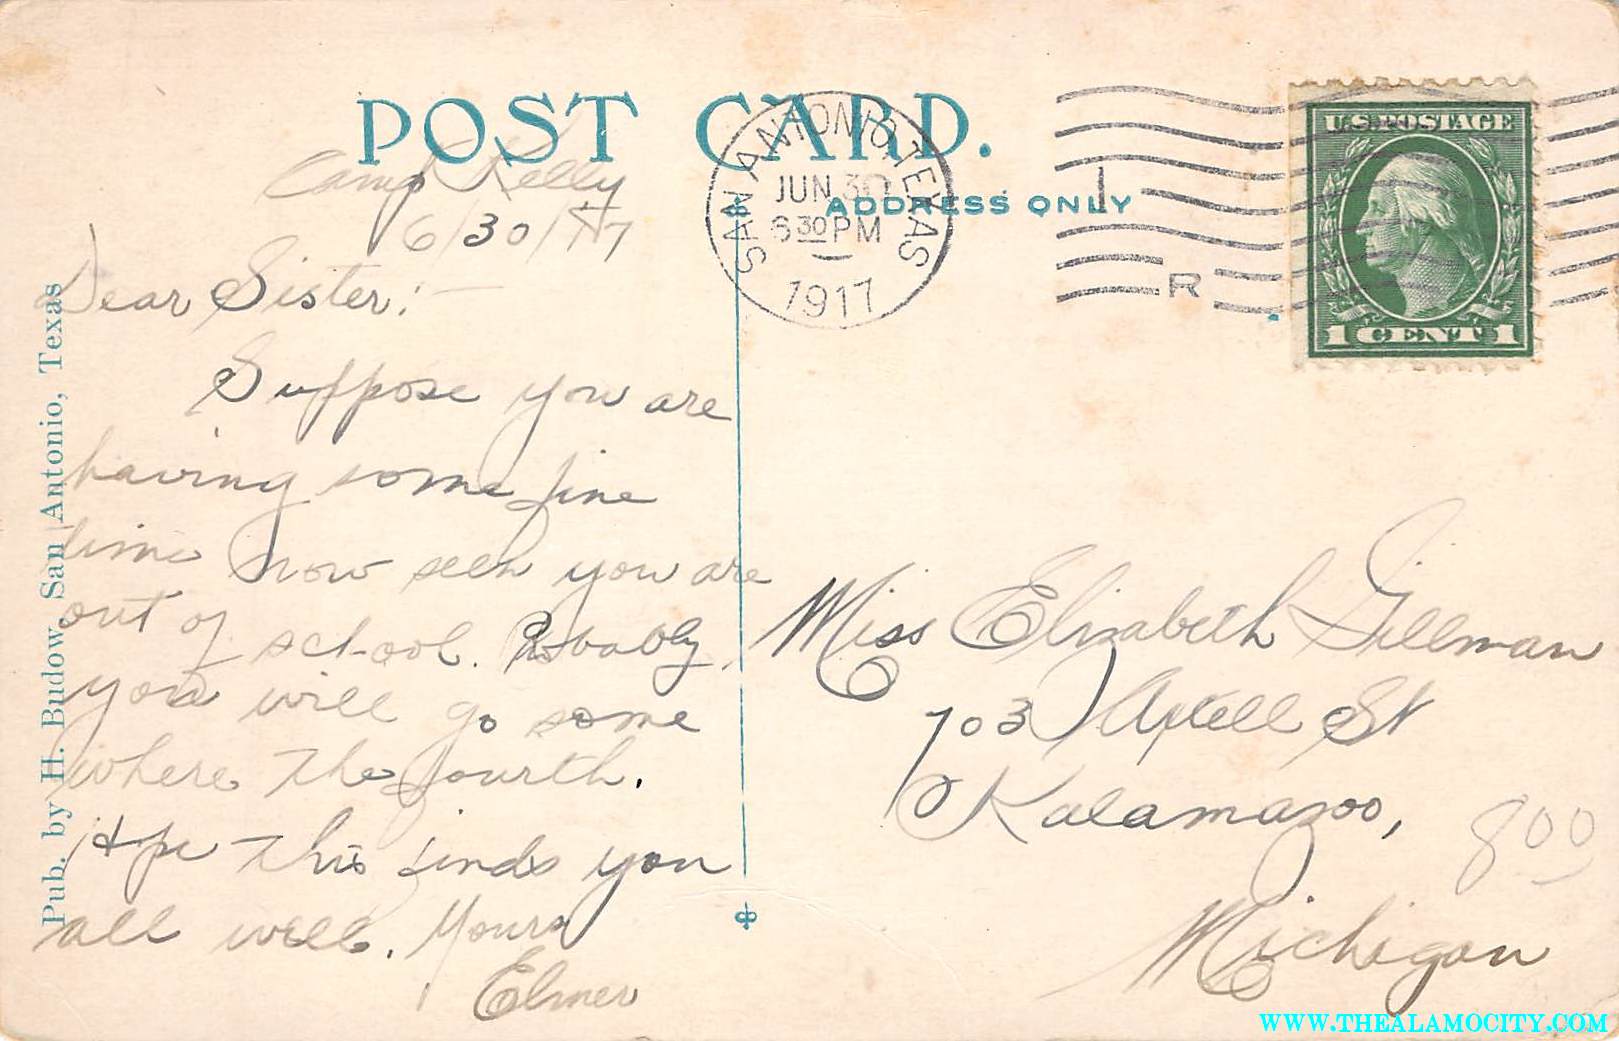 POST CARD.
ADDRESS ONLY
SAN ANTONIO, TEXAS
JUN 30
6 30 PM
1917
R
U.S. POSTAGE
1 CENT 1
Camp Kelly
6/30/17
Dear Sister:-
Suppose you are
having some fine
time now seen you are
out of school. Probably
you will go some
where the fourth.
Hope this finds you
all well. Yours
Elmer
Miss Elizabeth Tillman
703 Axtell St
Kalamazoo,
Michigan
800
Pub. by H. Budow, San Antonio, Texas
WWW.THEALAMOCITY.COM